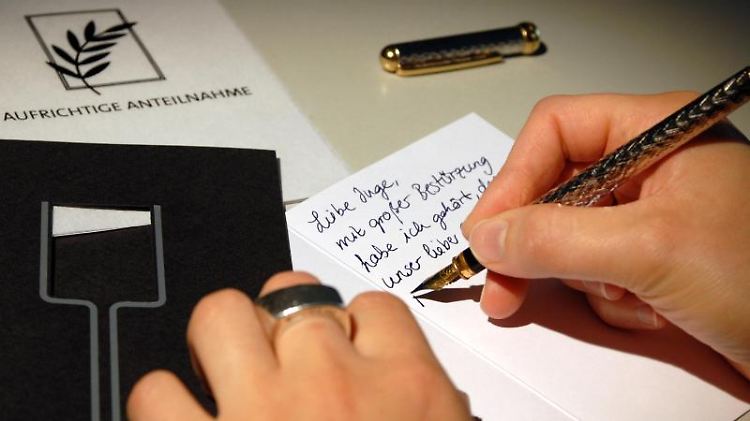 AUFRICHTIGE ANTEILNAHME
Liebe Inge,
mit großer Bestürzung
habe ich gehört,
unser lieber